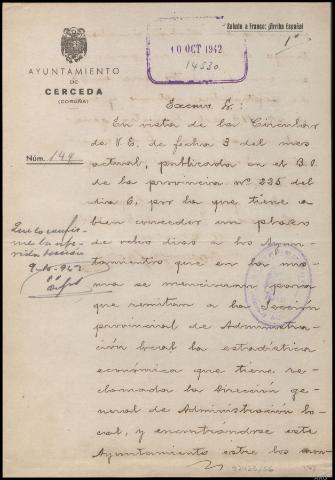 Saludo a Franco: ¡Arriba España!
1º
10 OCT 1942
14530
AYUNTAMIENTO
DE
CERCEDA
(CORUÑA)
Núm. 149
Excmo Sr.:
En vista de la Circular
de V.E. de fecha 3 del mes
actual, publicada en el B.O.
de la provincia nº 225 del
dia 6, por la que tiene a
bien conceder un plazo
de ocho dias a los Ayun-
tamientos que en la mis-
ma se mencionan para
que remitan a la Sección
provincial de Administra-
ción local la estadística
económica que tiene re-
clamada la Dirección ge-
neral de Administración lo-
cal, y encontrándose este
Ayuntamiento entre los
9-10-942